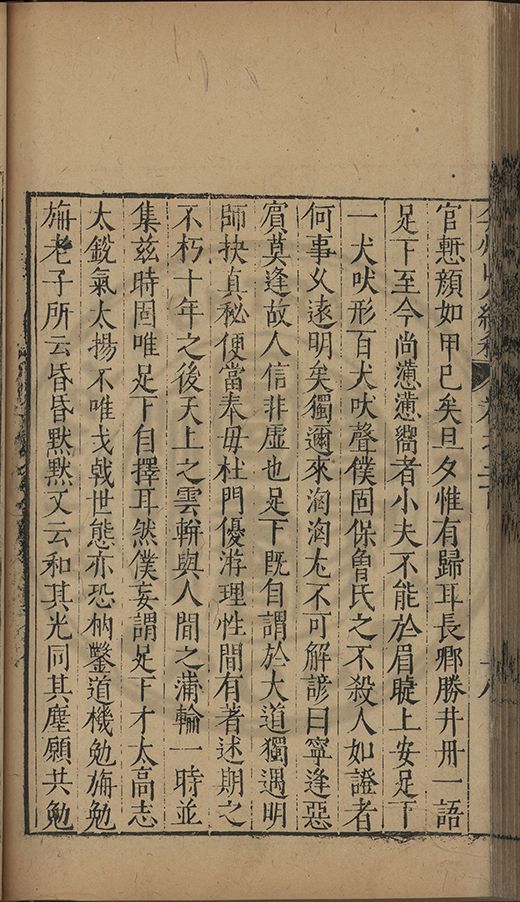 官慙顔如甲已矣旦夕惟有歸耳長卿勝井丹一語
足下至今尚懣懣嚮者小夫不能於眉睫上安足下
一犬吠形百犬吠聲僕固保魯氏之不殺人如證者
何事乆遠明矣獨邇來洶洶尤不可解諺曰寧逢惡
賔莫逢故人信非虛也足下既自謂於大道獨遇明
師抉真秘便當奉毋杜門優游理性間有著述期之
不朽十年之後天上之雲軿與人間之蒲輪一時並
集兹時固唯足下自擇耳然僕妄謂足下才太高志
太銳氣太揚不唯戈戟世態亦恐枘鑿道機勉旃勉
旃老子所云昏昏默默又云和其光同其塵願共勉